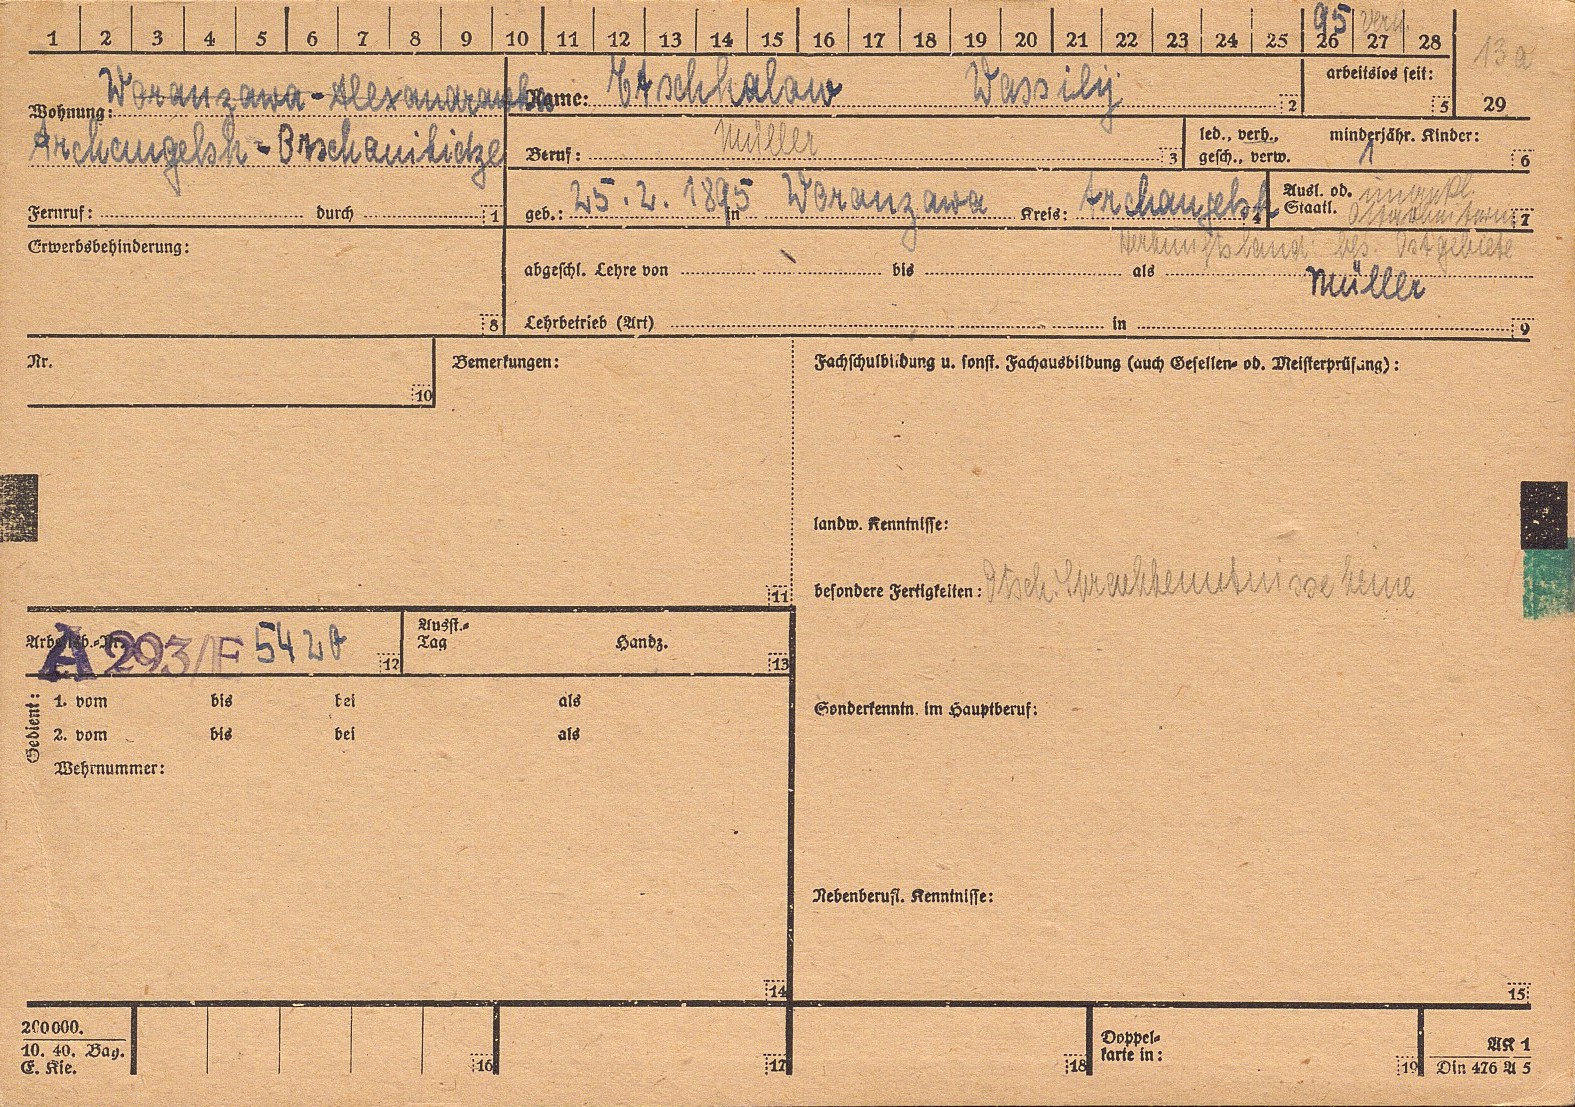 1 2 3 4 5 6 7 8 9 10 11 12 13 14 15 16 17 18 19 20 21 22 23 24 25 26 27 28
95 verh.
13a
29
Wohnung: Woranzawa-Alexandrawka
Archangelsk-
Fernruf: durch 1
Name: Tschkalow Wassilij 2
arbeitslos seit: 5
Beruf: Müller 3
led., verb., gesch., verw.
minderjähr. Kinder: 1 6
geb.: 25.2.1895 in Woranzawa Kreis: Archangelsk 4
Ausl. od. Staatl. ungekl. Ostarbeiter 7
Herkunftsland: bes. Ostgebiete
Erwerbsbehinderung: 8
abgeschl. Lehre von bis als Müller
Lehrbetrieb (Art) in 9
Nr. 10
Bemerkungen: 11
Fachschulbildung u. sonst. Fachausbildung (auch Gesellen- od. Meisterprüfung):
landw. Kenntnisse:
besondere Fertigkeiten: Dtsch. Sprachkenntnisse keine
Arbeitsb.-Nr. A 293/F 5420 12
Ausst.-Tag Handz. 13
Gedient:
1. vom bis bei als
2. vom bis bei als
Wehrnummer:
14
Sonderkenntn. im Hauptberuf:
Nebenberufl. Kenntnisse:
15
200000.
10. 40. Bag.
E. Kie.
16 17 18
Doppel-
karte in: 19
AK 1
Din 476 A 5